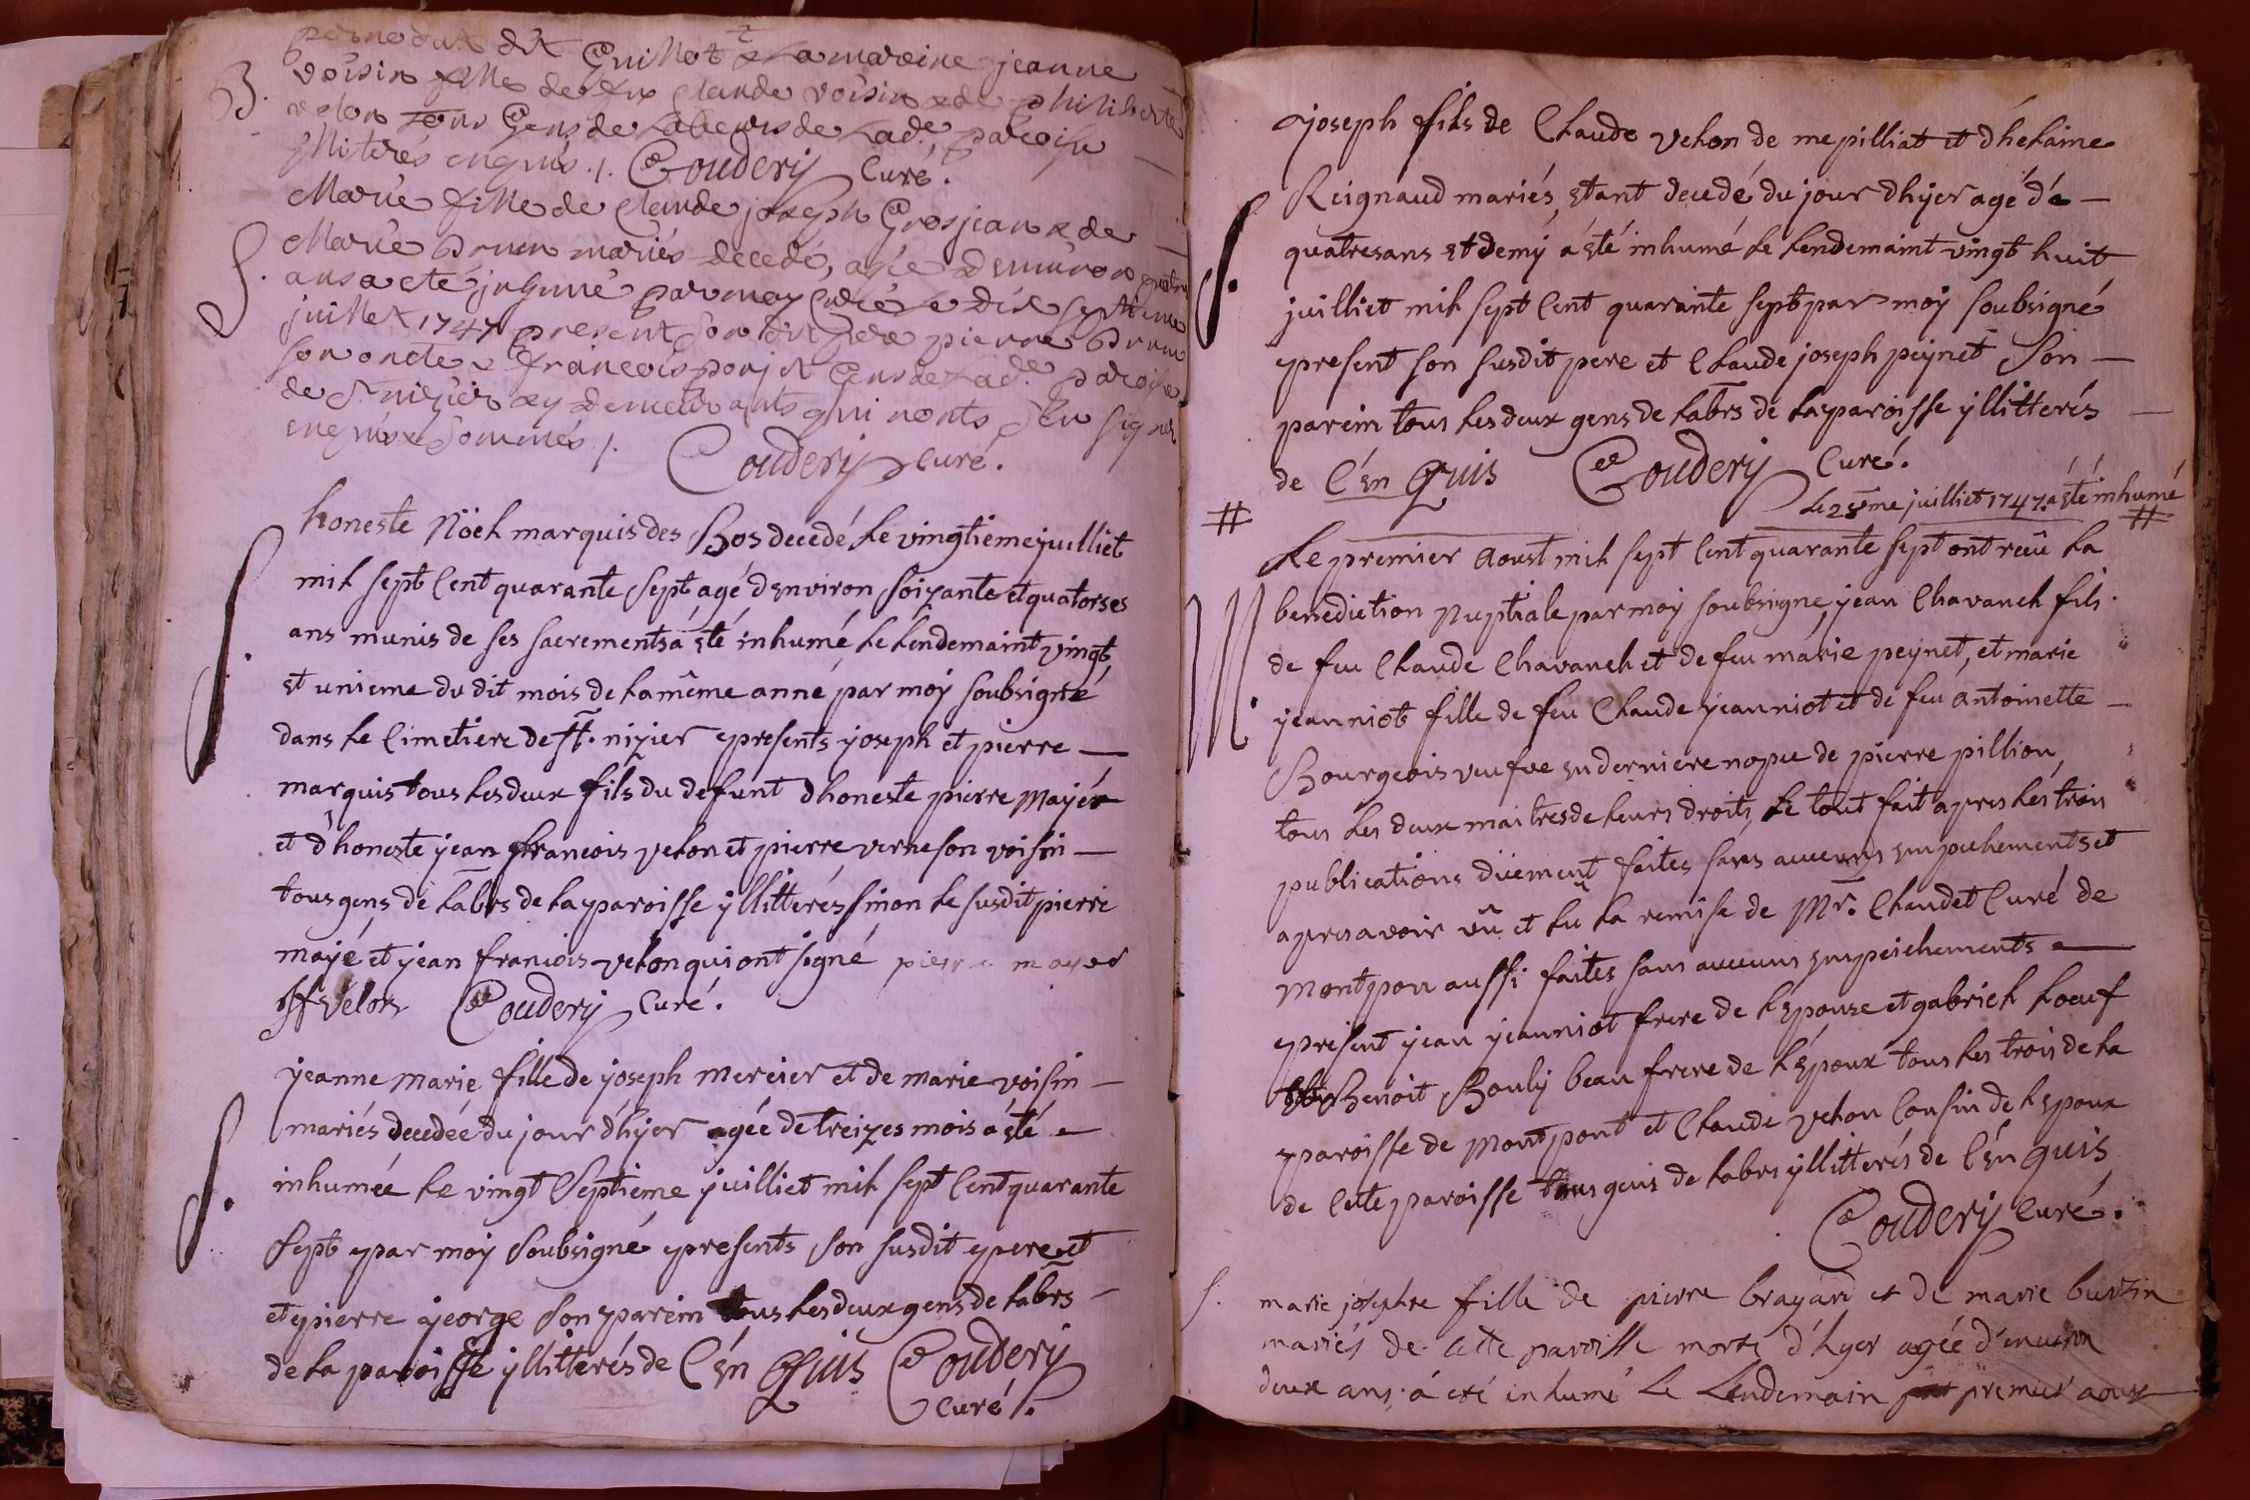 dit Guillot & La mareine jeanne
B.
voisin fille de feu Claude voisin & de philiberte
velon tous Gens de Labeurs de Lad.e paroisse
illiterés enquis ./. Coudery Curé.
Marie fille de Claude joseph Grosjean & de
S.
Marie Brun mariés decedé, agée d'environ quatre
ans a eté inhumé par moy Curé Le dix septieme
juillet 1747 present son dit pere pierre Brun
son oncle & francois ponjet Gens de Lad.e paroisse
de St nizier & y demeurants qui nonts sceu signer
enquis & sommés ./.
Coudery Curé.
honeste Nöel marquis des Bos decedé le vingtieme juilliet
S.
mil sept Cent quarante sept agé d'environ soizante et quatorses
ans munis de ses sacrements a été inhumé le lendemaint vingt
et unieme du dit mois de la même anné par moy soubsigné
dans le Cimetiere de st. nizier presents joseph et pierre
marquis tous les deux fils du defunt d'honeste pierre Mayér
et d'honeste jean francois velon et pierre verne son voisin
tous gens de labrs de la paroisse yllitterés sinon le susdit pierre
mayé et jean francois velon qui ont signé pierre mayer
Jf velon Coudery Curé.
jeanne Marie fille de joseph mercier et de marie voisin
S.
mariés decedée du jour d'hyer agée de treizes mois a été
inhumée le vingt septieme juilliet mil sept Cent quarante
sept par moy soubsigné presents son susdit pere et
et pierre george son parein tous les deux gens de labrs
de la paroisse yllitterés de C'en Quis Coudery
Curé.
joseph fils de Claude velon de mepilliat et d'helaine
Reignaud mariés, etant decedé du jour d'hyer agé de
S.
quatres ans et demy a été inhumé le lendemaint vingt huit
juilliet mil sept Cent quarante sept par moy soubsigné
present son susdit pere et Claude joseph peynet son
parein tous les deux gens de labrs de la paroisse yllitterés
de C'en Quis Coudery Curé.
# Le 28me juilliet 1747. a été inhumé #
Le premier Aoust mil sept Cent quarante sept ont reçû la
M.
benediction Nuptiale par moy soubsigné, jean Chavanel fils
de feu Claude Chavanel et de feu marie peynet, et marie
jeanniot fille de feu Claude jeanniot et de feu antoinette
Bourgeois veufve en derniere nopce de pierre pillion,
tous les deux maitres de leurs droits, le tout fait apres les trois
publications düement faites sans aucuns empechements et
apres avoir vû et lû la remise de Mr. Chaudet Curé de
Montpon aussi faites sans aucuns empeichements
present jean jeanniot frere de l'epouse et gabriel loeuf
Benoit Bouly beau frere de l'Epoux tous les trois de la
paroisse de Montpont et Claude velon Cousin de l'epoux
de Cette paroisse tous gens de labrs yllitterés de C'en quis
Coudery Curé.
S.
marie josephte fille de pierre brayard et de marie burtin
mariés de cette paroisse morte d'hyer agée d'environ
deux ans, a eté inhumé le Lendemain premier aoust